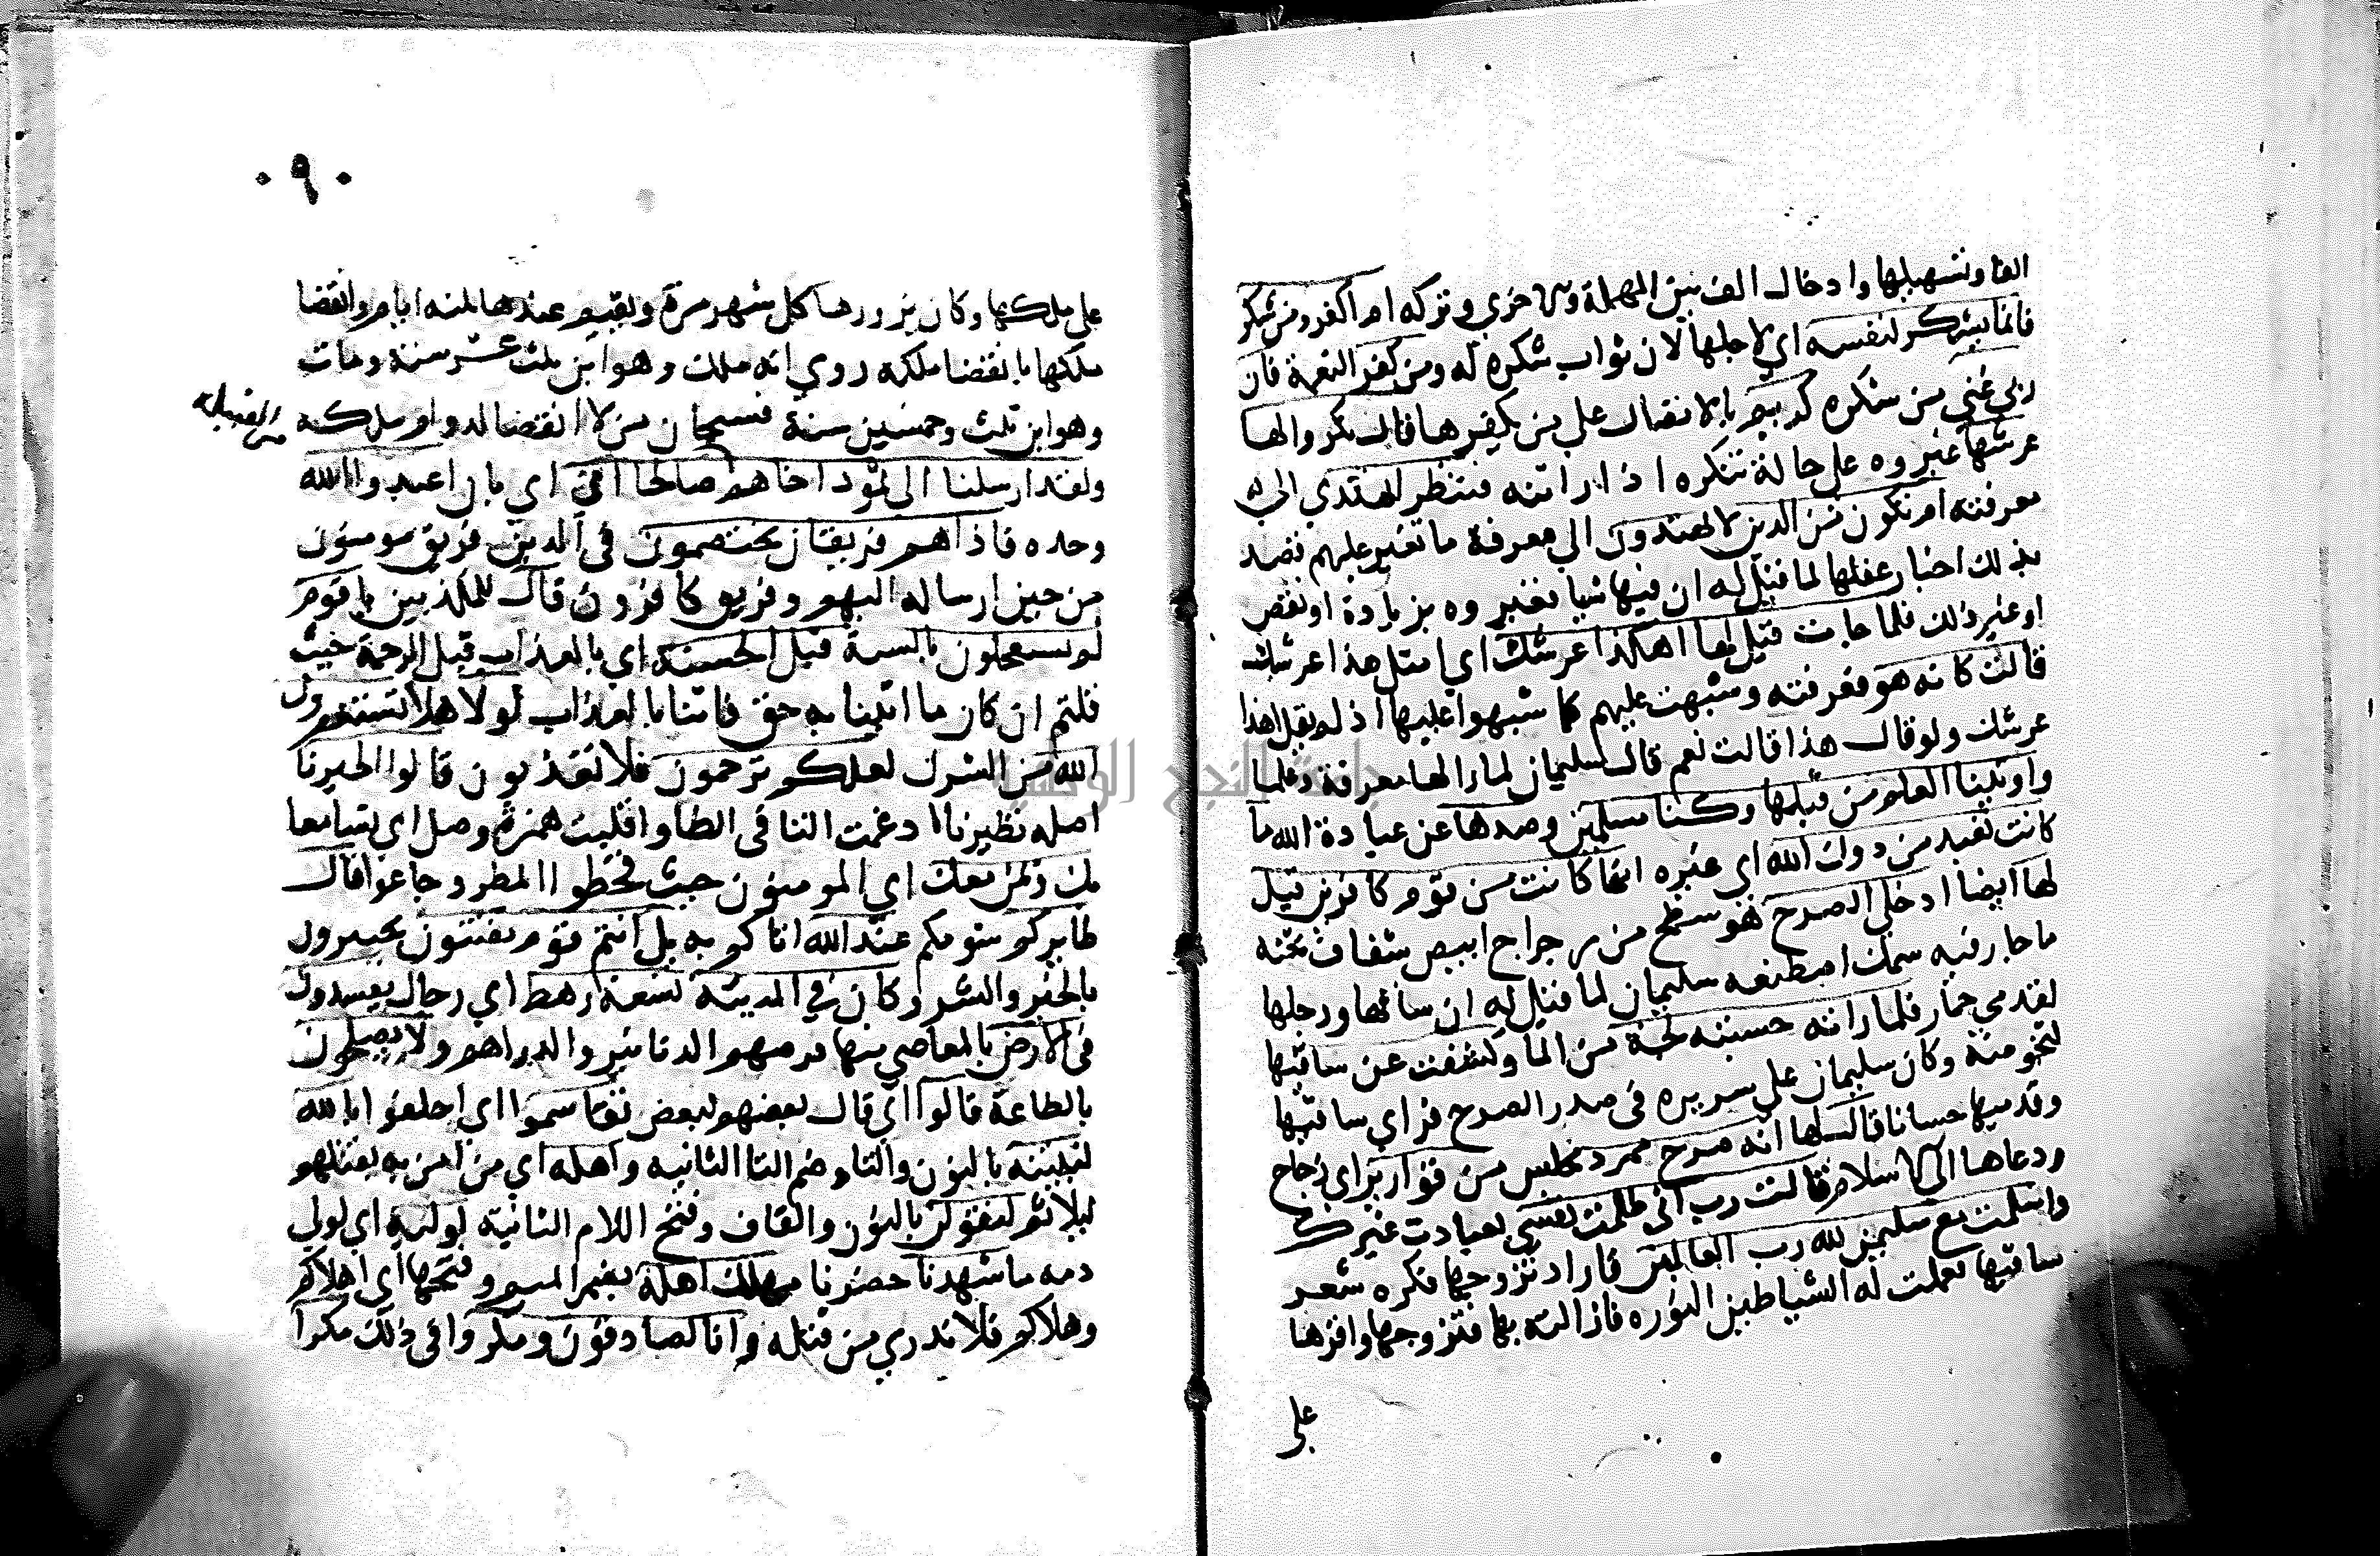 الفا وتسهيلها وادخال الف بين المهملة والاخري وتركه ام اكفر ومن شكر
فانما يشكر لنفسه اي لاجلها لان ثواب شكره له ومن كفر النعمة فان
ربي غني عن شكره كريم بالافضال علي من يكفرها قال نكروا لها
عرشها غيروه علي حالة تنكره اذا راته ننظر اتهتدي الي
معرفته ام تكون من الذين لا يهتدون الي معرفة ما تغير عليهم قصد
بذلك اختبار عقلها لما قيل له ان فيها شيا فغيروه بزيادة او نقص
او غير ذلك فلما جات قيل لها اهكذا عرشك اي امثل هذا عرشك
قالت كانه هو فعرفته وشبهت عليهم كما شبهوا عليها اذ لم يقل اهذا
عرشك ولو قال هذا قالت نعم قال سليمان لما راي لها معرفة وعلما
واوتينا العلم من قبلها وكنا مسلمين وصدها عن عبادة الله ما
كانت تعبد من دون الله اي غيره انها كانت من قوم كافرين قيل
لها ايضا ادخلي الصرح هو سطح من زجاج ابيض شفاف تحته
ما جار فيه سمك اصطنعه سليمان لما قيل له ان ساقيها ورجليها
لقدمي حمار فلما راته حسبته لجة من الما وكشفت عن ساقيها
لتخوضه وكان سليمان علي سريره في صدر الصرح فراي ساقيها
وقدميها حسانا قال لها انه صرح ممرد مملس من قوارير اي زجاج
ودعاها الي الاسلام قالت رب اني ظلمت نفسي بعبادت غيرك
واسلمت مع سليمن لله رب العالمين فاراد تزوجها فكره شعر
ساقيها فعملت له الشياطين النوره فازالته بها فتزوجها واقرها
علي
٩٠
علي ملكها وكان يزورها كل شهر مرة ويقيم عندها ثلثه ايام وانقضا
ملكها بانقضا ملكه روي انه ملك وهو ابن ثلث عشر سنة ومات
وهو ابن ثلث وخمسين سنة فسبحان من لا انقضا لدوام ملكه
ولقد ارسلنا الي ثمود اخاهم من القبيله صالحا ان اي بان اعبدوا الله
وحده فاذا هم فريقان يختصمون في الدين فريق مومنون
من حين ارساله اليهم وفريق كافرون قال للمكذبين يا قوم
لم تستعجلون بالسية قبل الحسنة اي بالعذاب قبل الرحمة حيث
قلتم ان كان ما اتيتنا به حق فاتنا بالعذاب لولا هلا تستغفرون
الله من الشرك لعلكم ترحمون فلا تعذبون قالوا اطيرنا
اصله تطيرنا ادغمت التا في الطا واقلبت همزة وصل اي تشامنا
بك وبمن معك اي المومنون حيث قحطوا المطر وجاعوا قال
طايركم شومكم عند الله اتاكم به بل انتم قوم تفتنون تختبرون
بالخير والشر وكان في المدينة تسعة رهط اي رجال يفسدون
في الارض بالمعاصي منها قرضهم الدنانير والدراهم ولا يصلحون
بالطاعة قالوا اي قال بعضهم لبعض تقاسموا اي احلفوا بالله
لنبيتنه بالنون والتا وضم التا الثانيه واهله اي من امن به نقتلهم
ليلا ثم لنقولن بالنون والقاف وفتح اللام الثانية لوليه اي لولي
دمه ما شهدنا حضرنا مهلك اهله بضم الميم وفتحها اي اهلاكهم
وهلاكهم فلا ندري من قتله وانا لصادقون ومكروا في ذلك مكرا
جامعة النجاح الوطنية